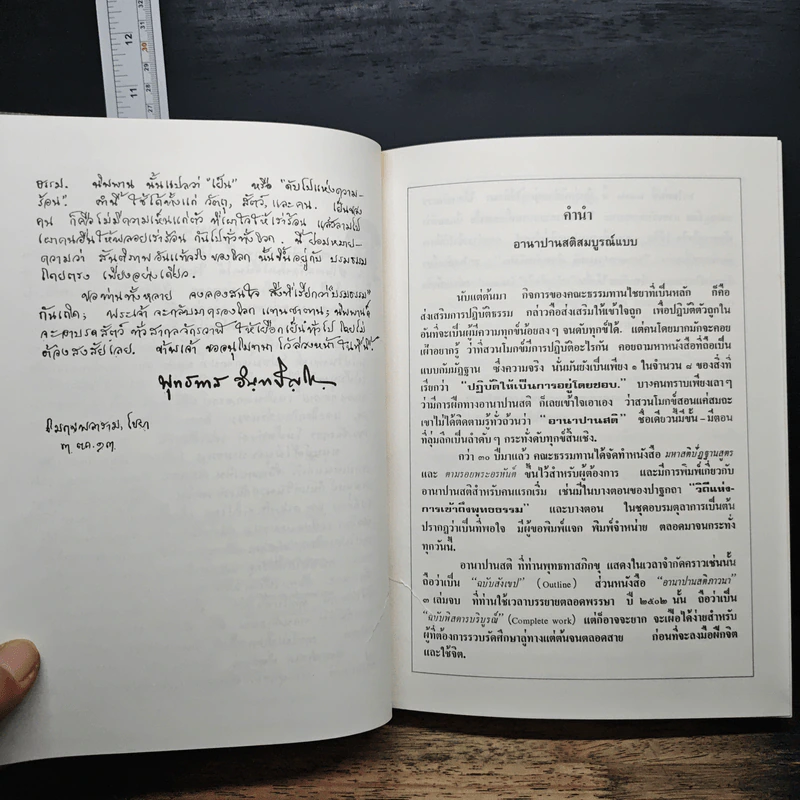 12
11
30
29
28
27
ธรรม. นิพพาน นั้นแปลว่า "เย็น" หรือ "ดับไปแห่งความ-
ร้อน". คำนี้ ใช้ได้ทั้งแก่ วัตถุ, สัตว์, และ คน. เย็นของ
คน ก็คือไม่มีความเห็นแก่ตัว ที่เผาใจให้เร่าร้อน แล้วลามไป
เผาคนอื่นให้พลอยเร่าร้อน กันไปทั่วทั้งโลก. นี่ย่อมหมาย-
ความว่า สันติภาพอันแท้จริง ของโลก นั้นขึ้นอยู่กับ ปรมธรรม
โดยตรง เพียงอย่างเดียว.
ขอท่านทั้งหลาย จงลองสนใจ สิ่งที่เรียกว่า"ปรมธรรม"
กันเถิด; พระเจ้า จะกลับมาครองโลก แทนซาตาน; นิพพาน
จะอาบรดสัตว์ ทั่วสากลจักรวาล ให้เยือกเย็นทั่วไป โดยไม่
ต้องสงสัยเลย. ข้าพเจ้า ขออนุโมทนา ไว้ล่วงหน้า ในที่นี้.
พุทธทาส อินทปัญโญ.
โมกขพลาราม, ไชยา
๓ ตค. ๑๓
คำนำ
อานาปานสติสมบูรณ์แบบ
นับแต่ต้นมา กิจการของคณะธรรมทานไชยาที่เป็นหลัก ก็คือ
ส่งเสริมการปฏิบัติธรรม กล่าวคือส่งเสริมให้เข้าใจถูก เพื่อปฏิบัติตัวถูกใน
อันที่จะเป็นผู้มีความทุกข์น้อยลงๆ จนดับทุกข์ได้. แต่คนโดยมากมักจะคอย
เฝ้าอยากรู้ ว่าที่สวนโมกข์มีการปฏิบัติอะไรกัน คอยถามหาหนังสือที่ถือเป็น
แบบกัมมัฏฐาน ซึ่งความจริง นั้นมันยังเป็นเพียง ๑ ในจำนวน ๘ ของสิ่งที่
เรียกว่า "ปฏิบัติให้เป็นการอยู่โดยชอบ." บางคนทราบเพียงเลาๆ
ว่ามีการฝึกทางอานาปานสติ ก็เลยเข้าใจเอาเอง ว่าสวนโมกข์สอนแค่สมถะ
เขาไม่ได้ติดตามรู้ทั่วถ้วนว่า "อานาปานสติ" ชื่อเดียวนี้มีขั้น–มีตอน
ที่ลุ่มลึกเป็นลำดับๆ กระทั่งดับทุกข์สิ้นเชิง.
กว่า ๓๐ ปีมาแล้ว คณะธรรมทานได้จัดทำหนังสือ มหาสติปัฏฐานสูตร
และ ตามรอยพระอรหันต์ ขึ้นไว้สำหรับผู้ต้องการ และมีการพิมพ์เกี่ยวกับ
อานาปานสติสำหรับคนแรกเริ่ม เช่นมีในบางตอนของปาฐกถา "วิถีแห่ง-
การเข้าถึงพุทธธรรม" และบางตอน ในชุดอบรมตุลาการเป็นต้น
ปรากฏว่าเป็นที่พอใจ มีผู้ขอพิมพ์แจก พิมพ์จำหน่าย ตลอดมาจนกระทั่ง
ทุกวันนี้.
อานาปานสติ ที่ท่านพุทธทาสภิกขุ แสดงในเวลาจำกัดคราวเช่นนั้น
ถือว่าเป็น "ฉบับสังเขป" (Outline) ส่วนหนังสือ "อานาปานสติภาวนา"
๓ เล่มจบ ที่ท่านใช้เวลาบรรยายตลอดพรรษา ปี ๒๕๐๒ นั้น ถือว่าเป็น
"ฉบับพิสดารบริบูรณ์" (Complete work) แต่ก็อาจจะยาก จะเผื่อได้ง่ายสำหรับ
ผู้ที่ต้องการรวบรัดศึกษาลู่ทางแต่ต้นจนตลอดสาย ก่อนที่จะลงมือฝึกจิต
และใช้จิต.